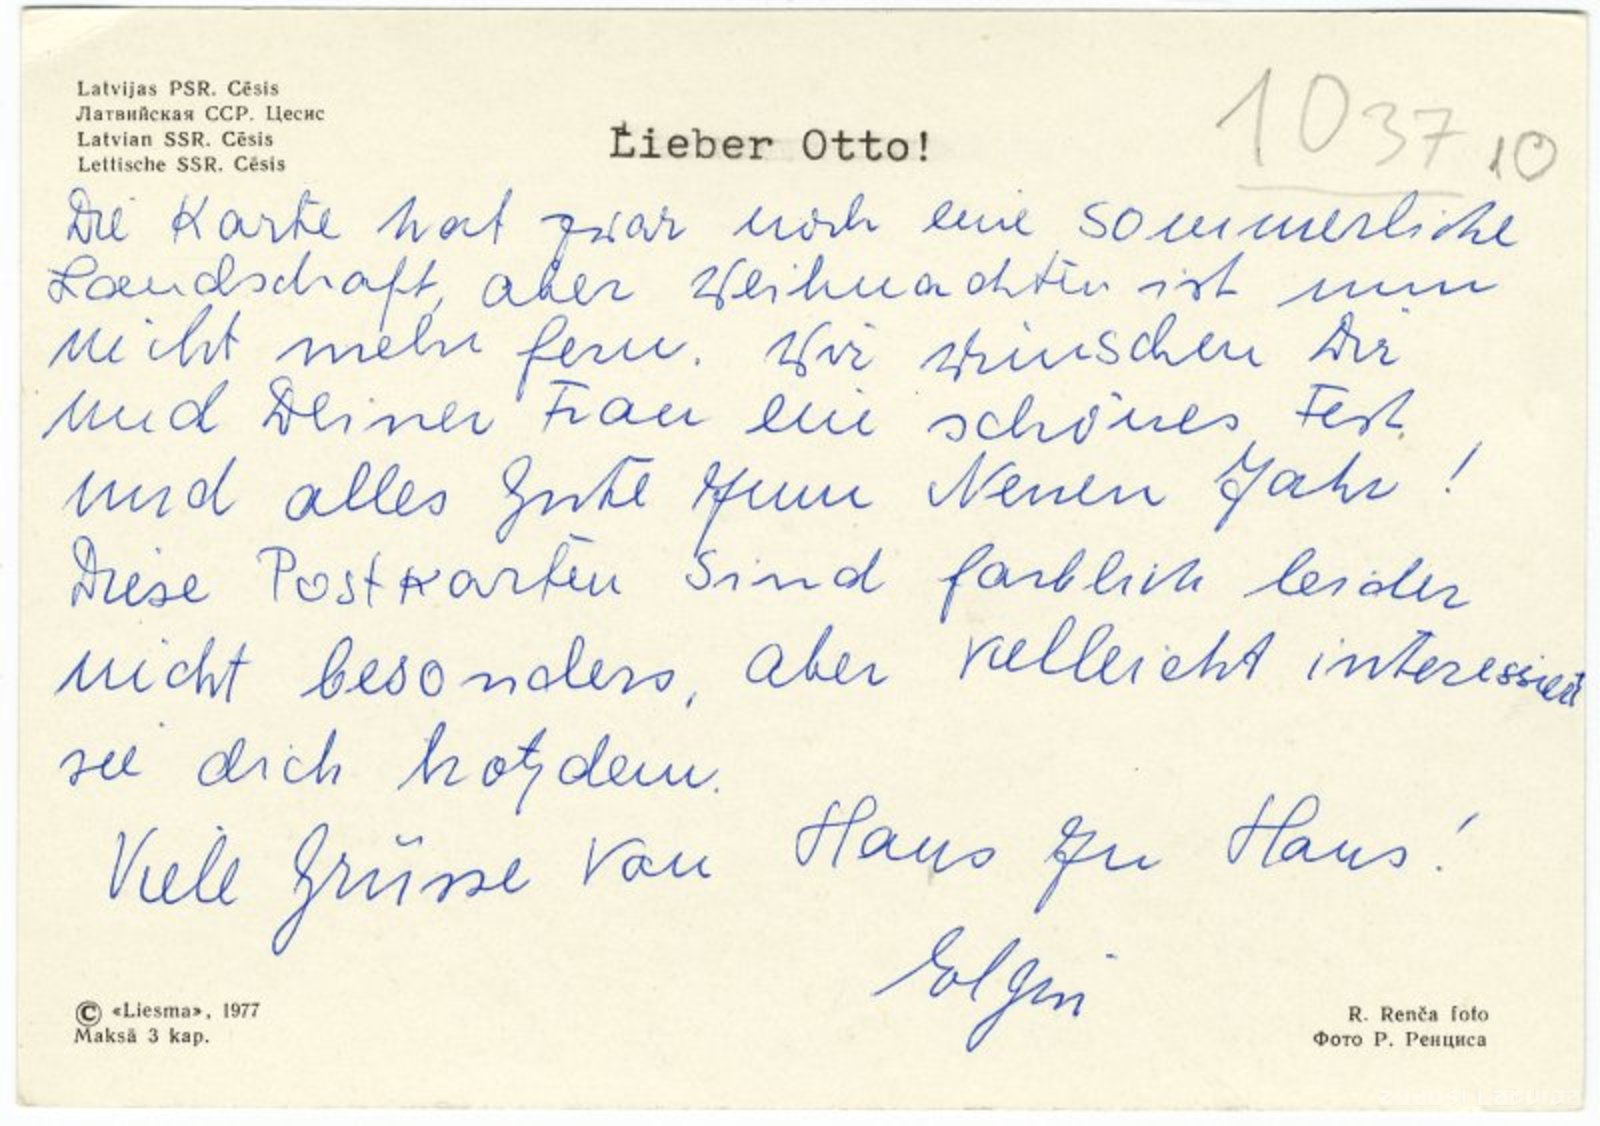 Latvijas PSR. Cēsis
Латвийская ССР. Цесис
Latvian SSR. Cēsis
Lettische SSR. Cēsis
1037 10
Lieber Otto!
Die Karte hat zwar noch eine sommerliche
Landschaft, aber Weihnachten ist nun
nicht mehr fern. Wir wünschen Dir
und Deiner Frau ein schönes Fest
und alles Gute zum Neuen Jahr!
Diese Postkarten sind farblich leider
nicht besonders, aber vielleicht interessieren
sie dich trotzdem.
Viele Grüsse von Haus zu Haus!
© «Liesma», 1977
Maksā 3 kap.
R. Renča foto
Фото Р. Ренциса